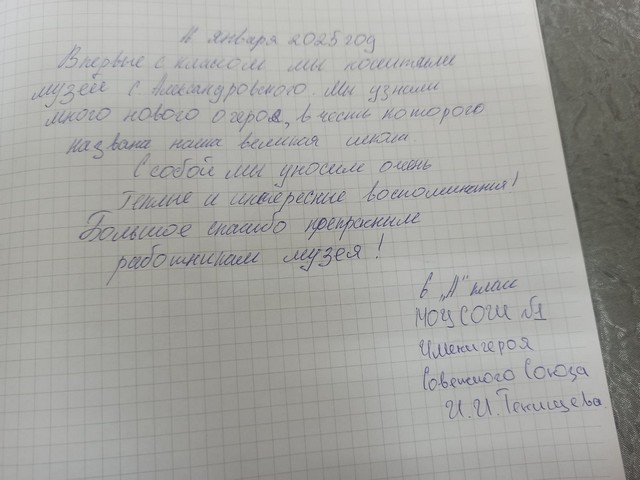 января 2025 год
Впервые с классом мы посетили
музей с Александровского. Мы узнали
много нового о герое, в честь которого
названа наша великая школа
С собой мы уносим очень
теплые и интересные воспоминания!
Большое спасибо прекрасным
работникам музея!
6 "А" класс
МОУ СОШ №1
имени героя
Советского Союза
И.И. Тенищева.